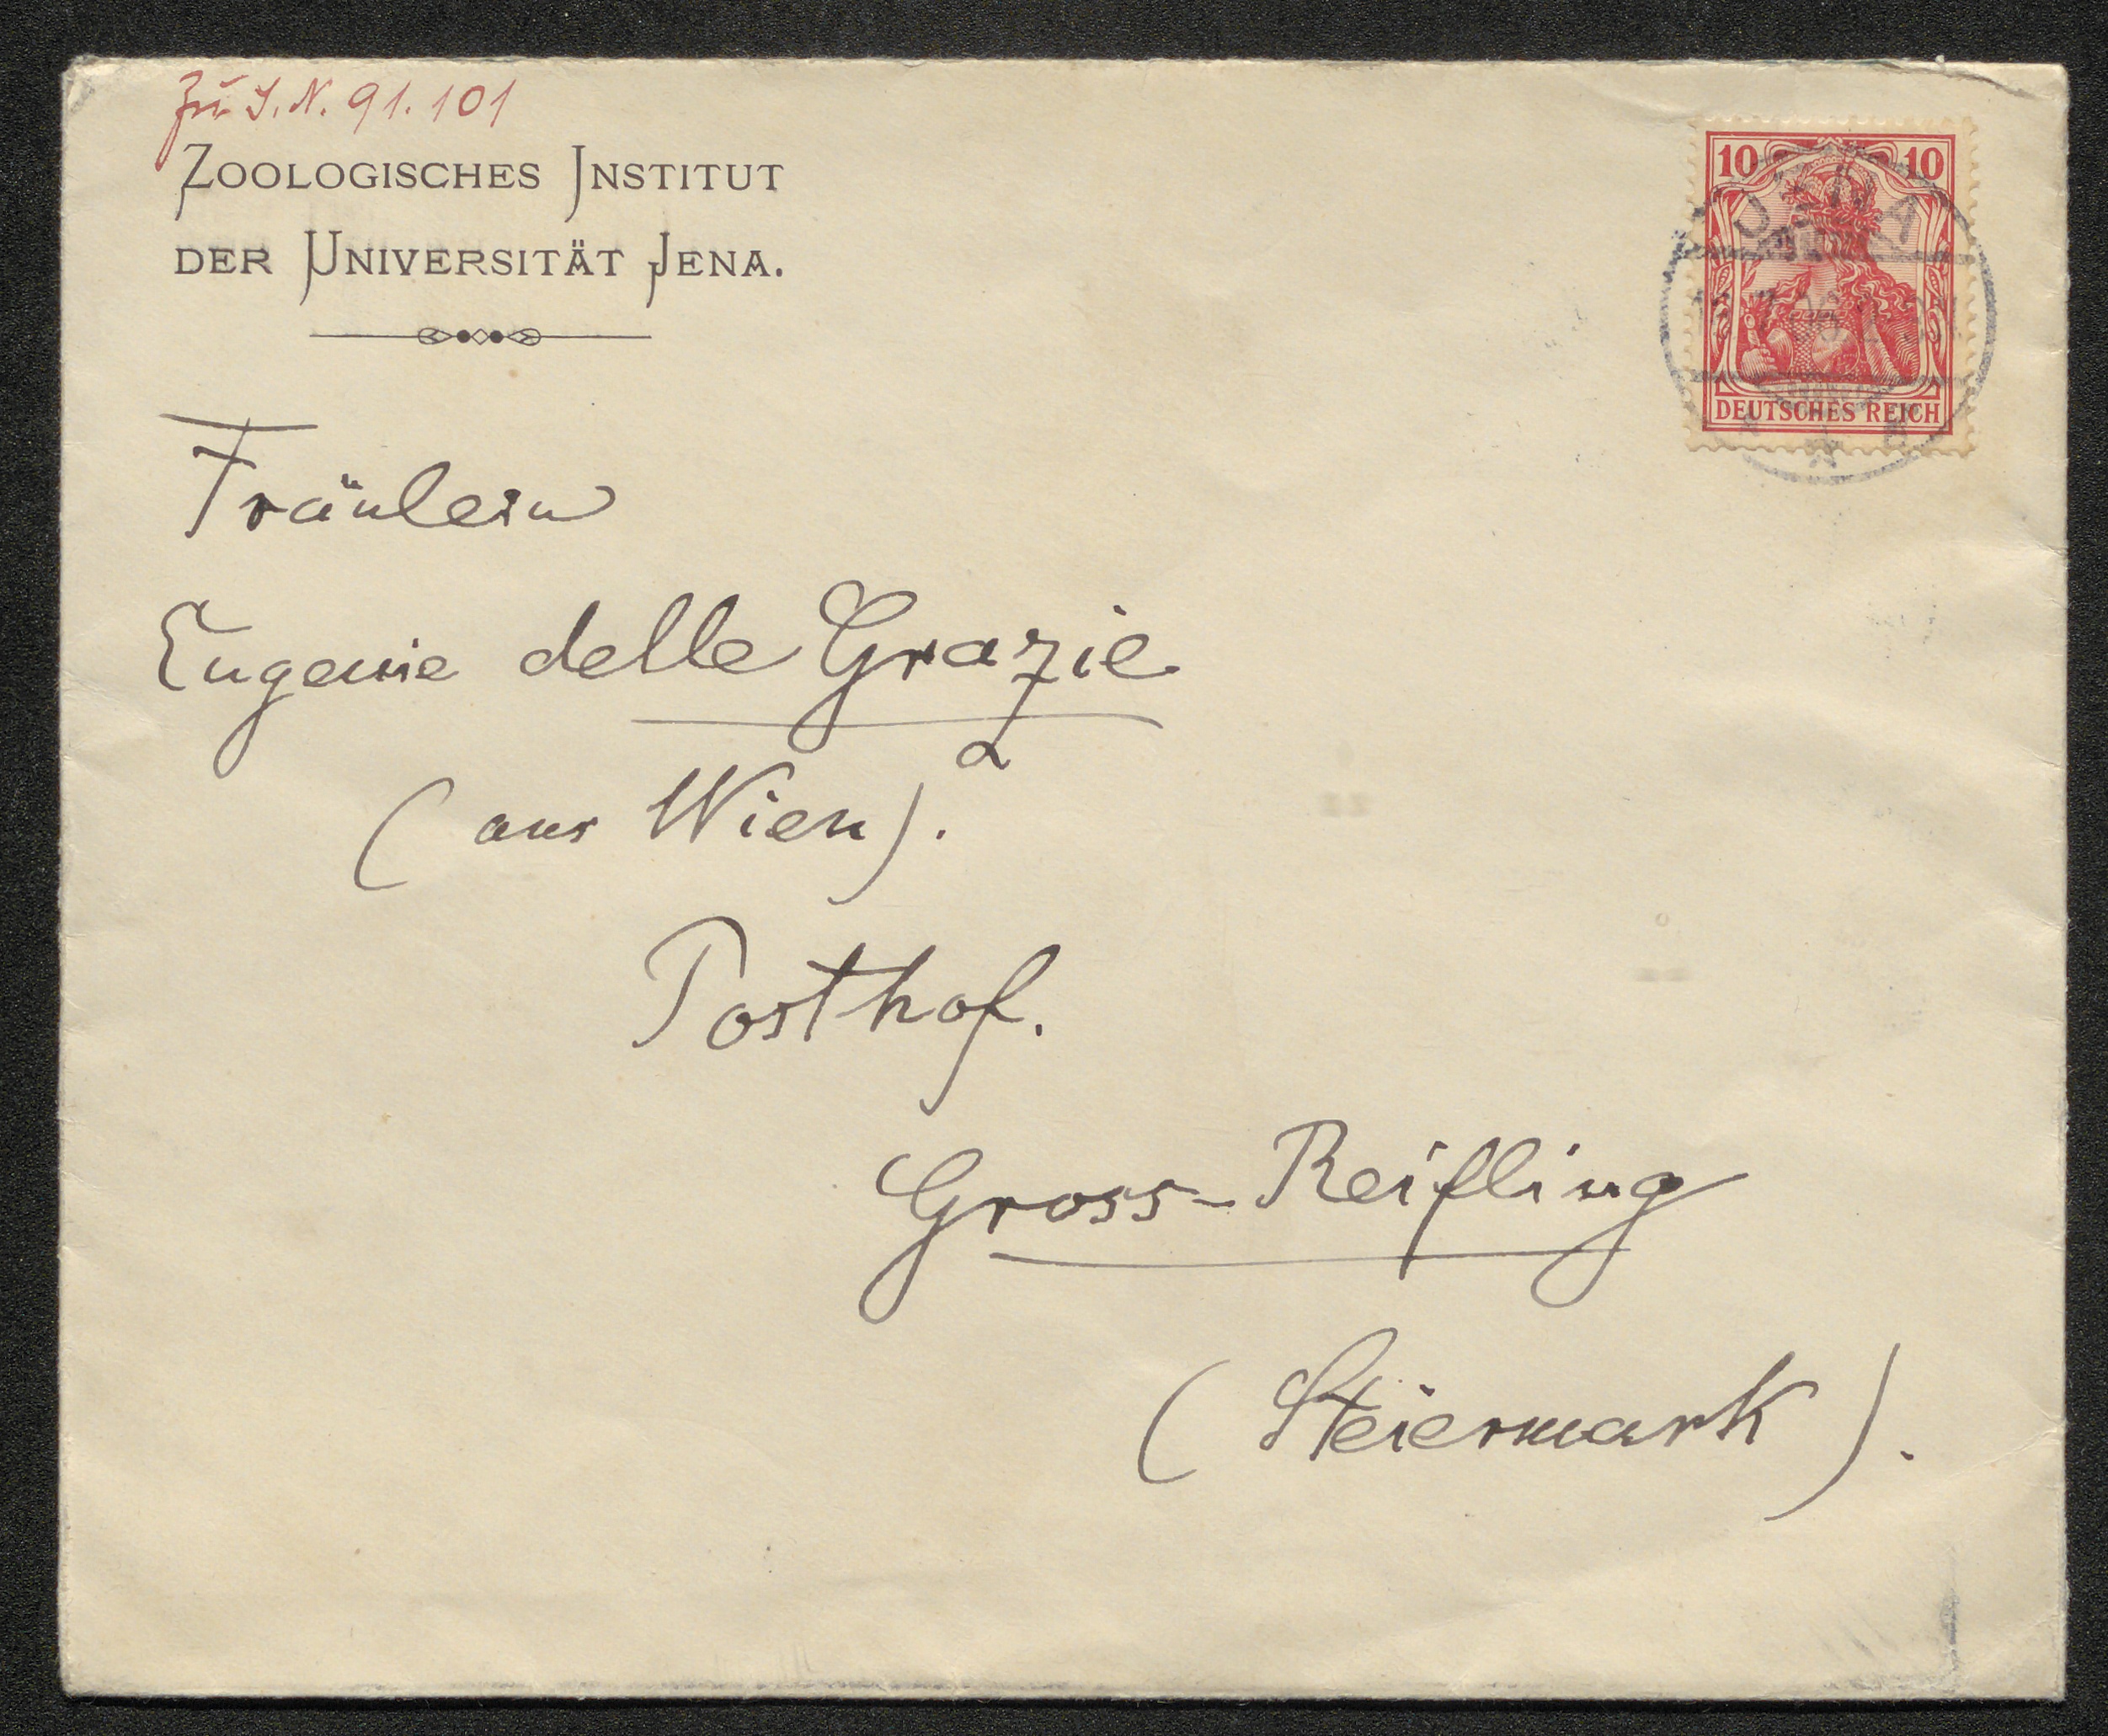 Zu I.N. 91.101
ZOOLOGISCHES INSTITUT
DER UNIVERSITÄT JENA.
10 10
JENA
DEUTSCHES REICH
Fräulein
Eugenie delle Grazie
(aus Wien).
Posthof.
Gross-Reifling
(Steiermark).